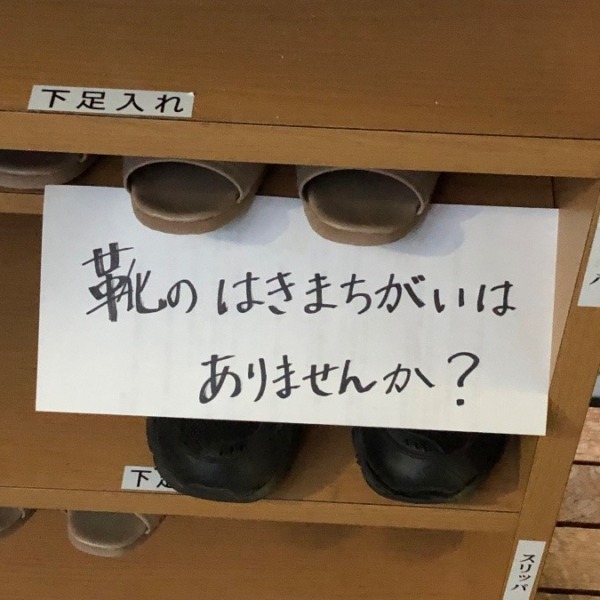 下足入れ
靴のはきまちがいは
ありませんか?
下足
スリッパ